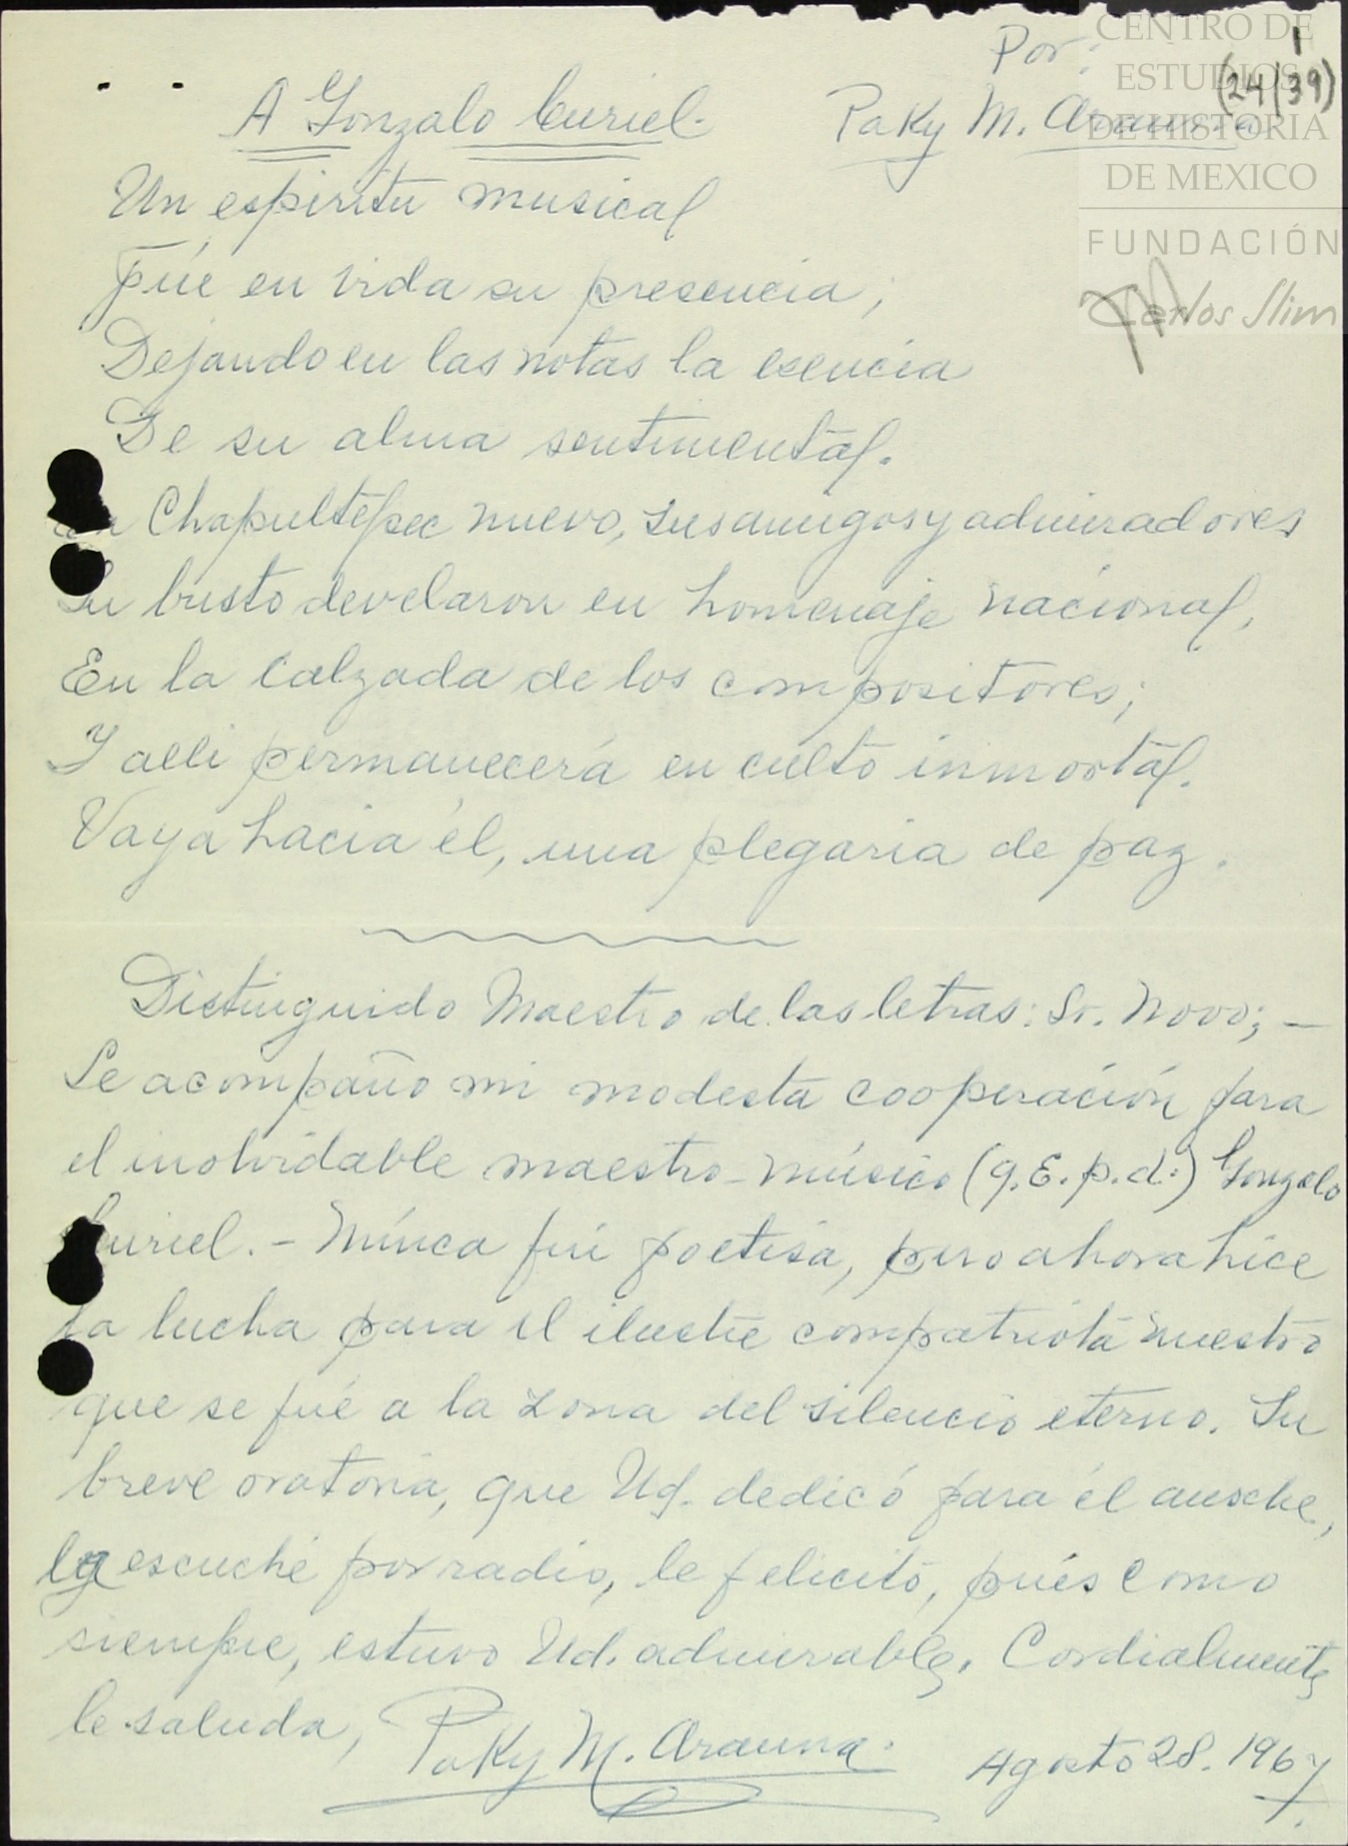 Por: 1
CENTRO DE
ESTUDIOS
DE HISTORIA
DE MEXICO
FUNDACIÓN
Carlos Slim
(24/39)
A Gonzalo Curiel. Paky M. Arauna
Un espíritu musical
fué en vida su presencia;
Dejando en las notas la esencia
De su alma sentimental.
En Chapultepec nuevo, sus amigos y admiradores
Su busto develaron en homenaje nacional,
En la Calzada de los compositores;
Y alli permanecerá en culto inmortal.
Vaya hacia él, una plegaria de paz.
Distinguido Maestro de las letras: Sr. Novo; —
Le acompaño mi modesta cooperación para
el inolvidable maestro-músico (q.E.p.d.) Gonzalo
Curiel. - Núnca fuí poetisa, pero ahora hice
la lucha para el ilustre compatriota nuestro
que se fué a la zona del silencio eterno. Su
breve oratoria, que Ud. dedicó para él anoche,
la escuché por radio, le felicito, pués como
siempre, estuvo Ud. admirable. Cordialmente
le saluda, Paky M. Arauna. Agosto 28. 1967.